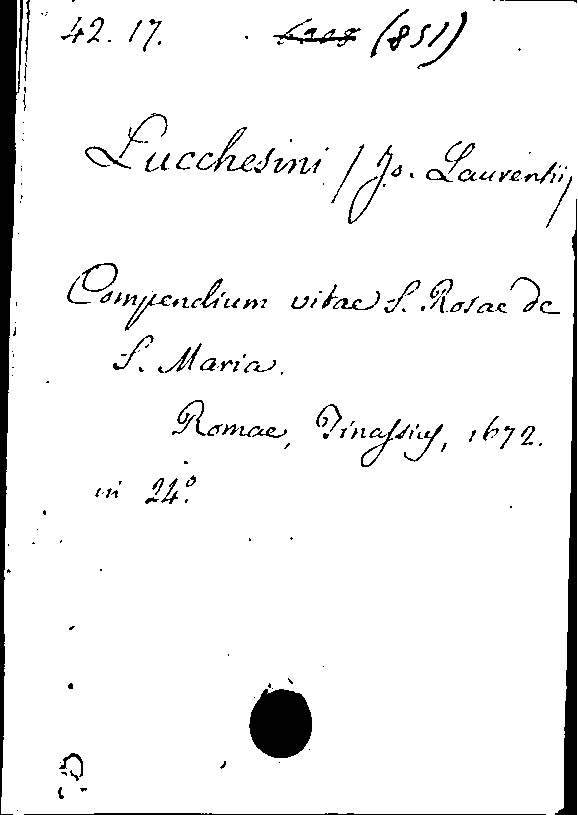 42. 17. (851)
Lucchesini / Jo. Laurentii /
Compendium vitae S. Rosae de
S. Maria.
Romae, Tinassius, 1672.
in 24.°